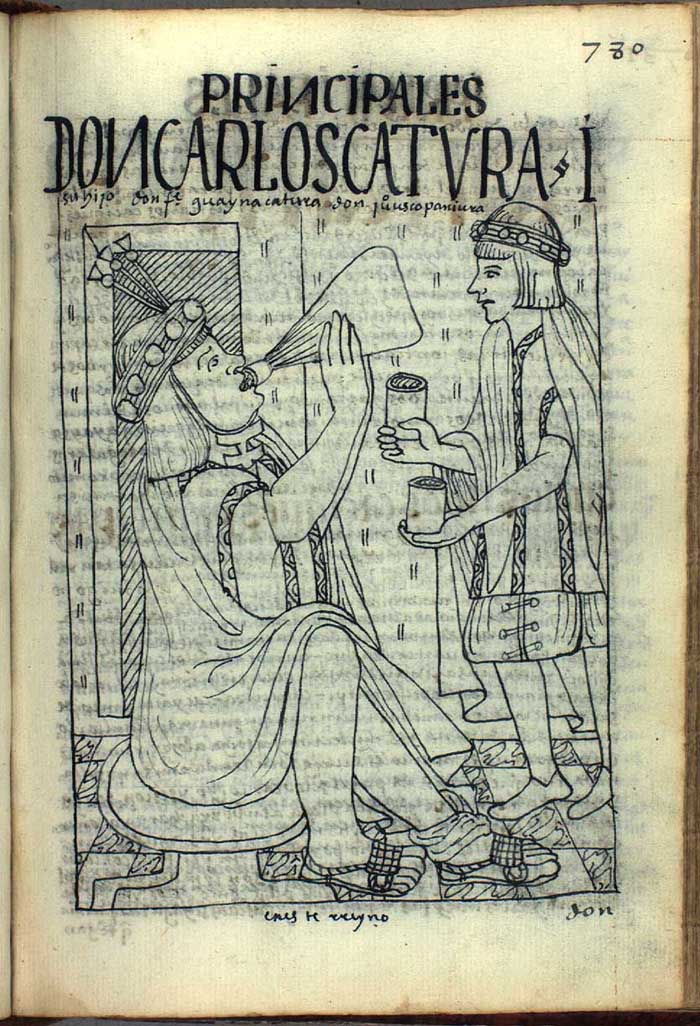 780
PRINCIPALES
DON CARLOS CATVRA, I
su hijo don fe guayna catura don juo uscopaniura
en este rreyno
don